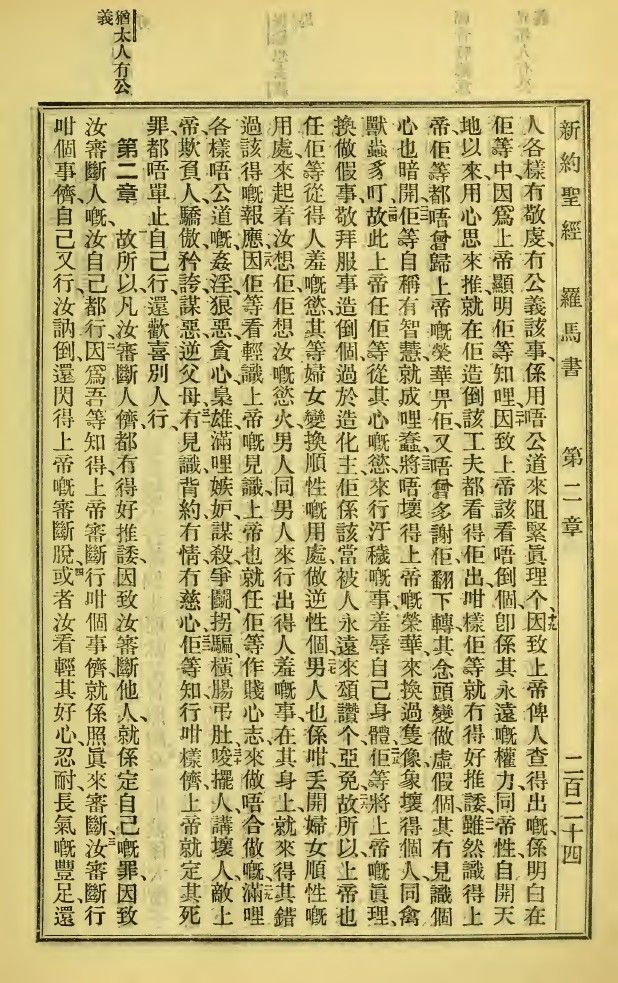 猶太人有公
義
新約聖經 羅馬書 第二章 二百二十四
人各樣冇敬虔、冇公義該事、係用唔公道來阻緊眞理个、十九因致上帝俾人查得出嘅、係明白在
佢等中、因爲上帝顯明佢等知哩、二十因致上帝該看唔倒個、卽係其永遠嘅權力、同帝性、自開天
地以來、用心思來推、就在佢造倒該工夫都看得佢出、咁樣佢等就冇得好推諉、雖然識得上
帝、佢等都唔曾歸上帝嘅榮華畀佢、又唔曾多謝佢、翻下轉其念頭變做虛假個、其冇見識個
心也暗開、佢等自稱有智慧、就成哩蠢、將唔壞得上帝嘅榮華、來換過隻像、象壞得個人、同禽
獸蟲豸叮、故此上帝任佢等從其心嘅慾、來行汙穢嘅事、羞辱自己身體、佢等將上帝嘅眞理、
換做假事、敬拜服事造倒個、過於造化主、佢係該當被人永遠來頌讚个、亞㝃、故所以上帝也
任佢等從得人羞嘅慾、其等婦女變換順性嘅用處、做逆性個、男人也係咁、丢開婦女順性嘅
用處、來起着汝想佢佢想汝嘅慾火、男人同男人來行出得人羞嘅事、在其身上就來得其錯
過該得嘅報應、因佢等看輕識上帝嘅見識、上帝也就任佢等作賤心志、來做唔合做嘅、滿哩
各樣唔公道嘅、姦淫、狠惡、貪心、梟雄、滿哩嫉妒、謀殺、爭鬭、拐騙、橫腸弔肚、唆擺人、講壞人、敵上
帝、欺負人、驕傲、矜誇、謀惡、逆父母、冇見識、背約、冇情、冇慈心、佢等知行咁樣儕、上帝就定其死
罪、都唔單止自己行、還歡喜別人行、
第二章 故所以凡汝審斷人儕、都冇得好推諉、因致汝審斷他人、就係定自己嘅罪、因致
汝審斷人嘅、汝自己都行、因爲吾等知得上帝審斷行咁個事儕、就係照眞來審斷、汝審斷行
咁個事儕、自己又行、汝訥倒還閃得上帝嘅審斷脫、或者汝看輕其好心、忍耐、長氣嘅豐足、還